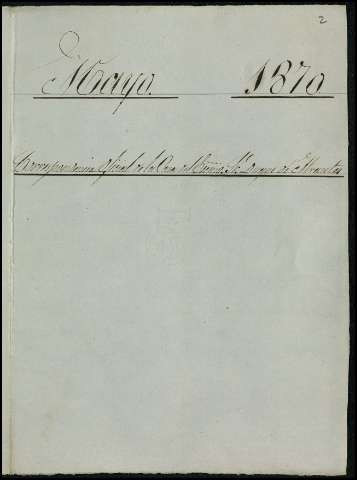 2
Mayo. 1870
Correspondencia Oficial de la Casa del Excmo. Sr. Duque de Abrantes